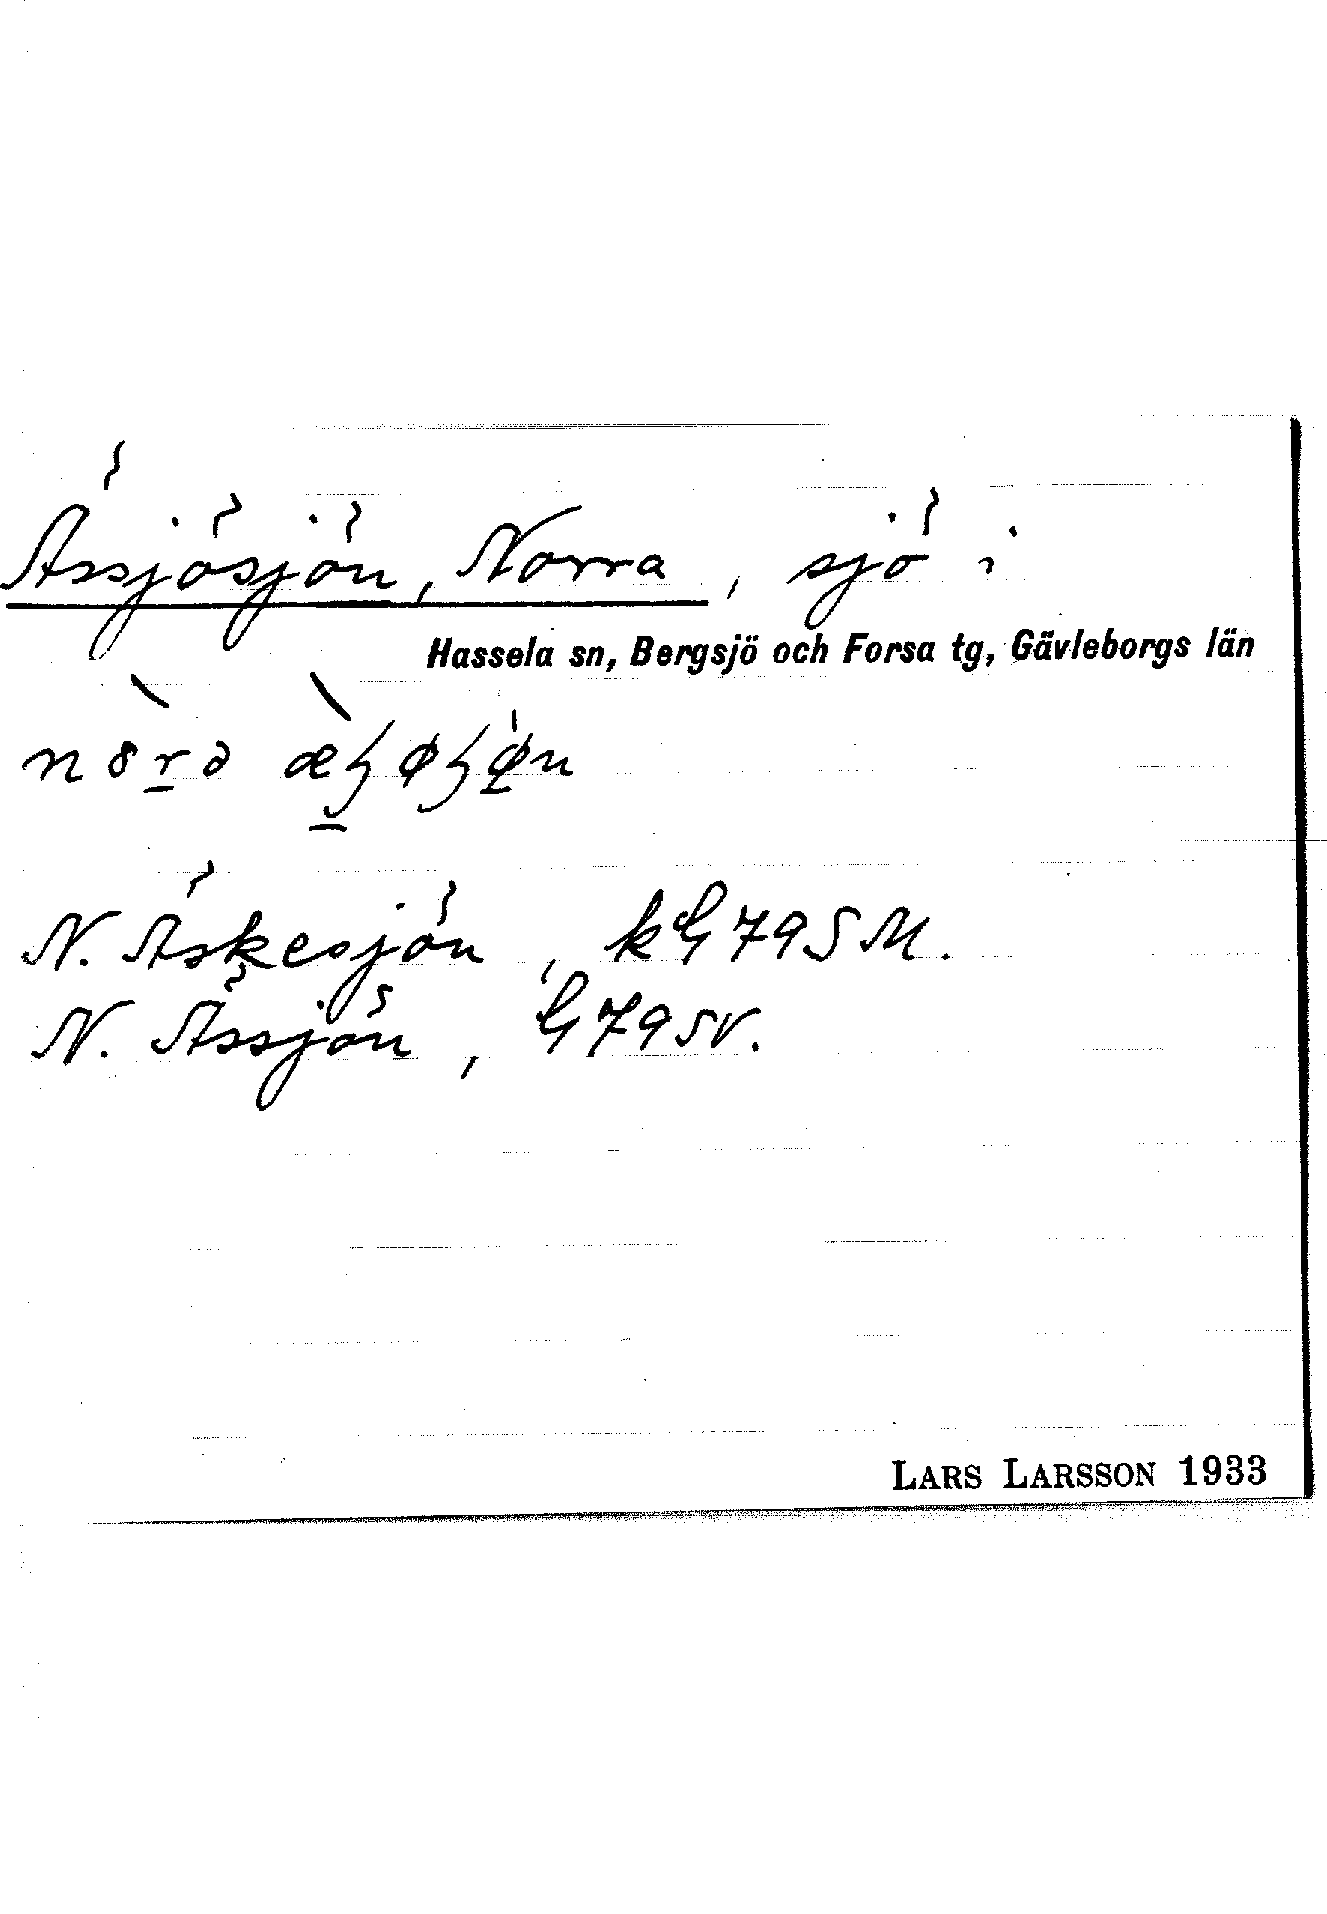 Ässjösjön, Norra, sjö i
Hassela sn, Bergsjö och Forsa tg, Gävleborgs län
N. Äskesjön, kG79SM.
N. Ässjön, G79SV.
LARS LARSSON 1933